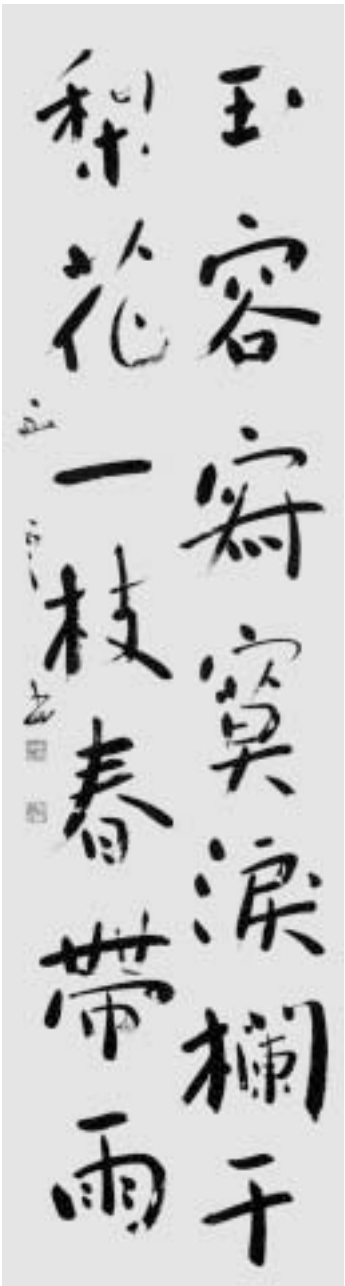 玉容寂寞淚欄干
梨花一枝春帶雨